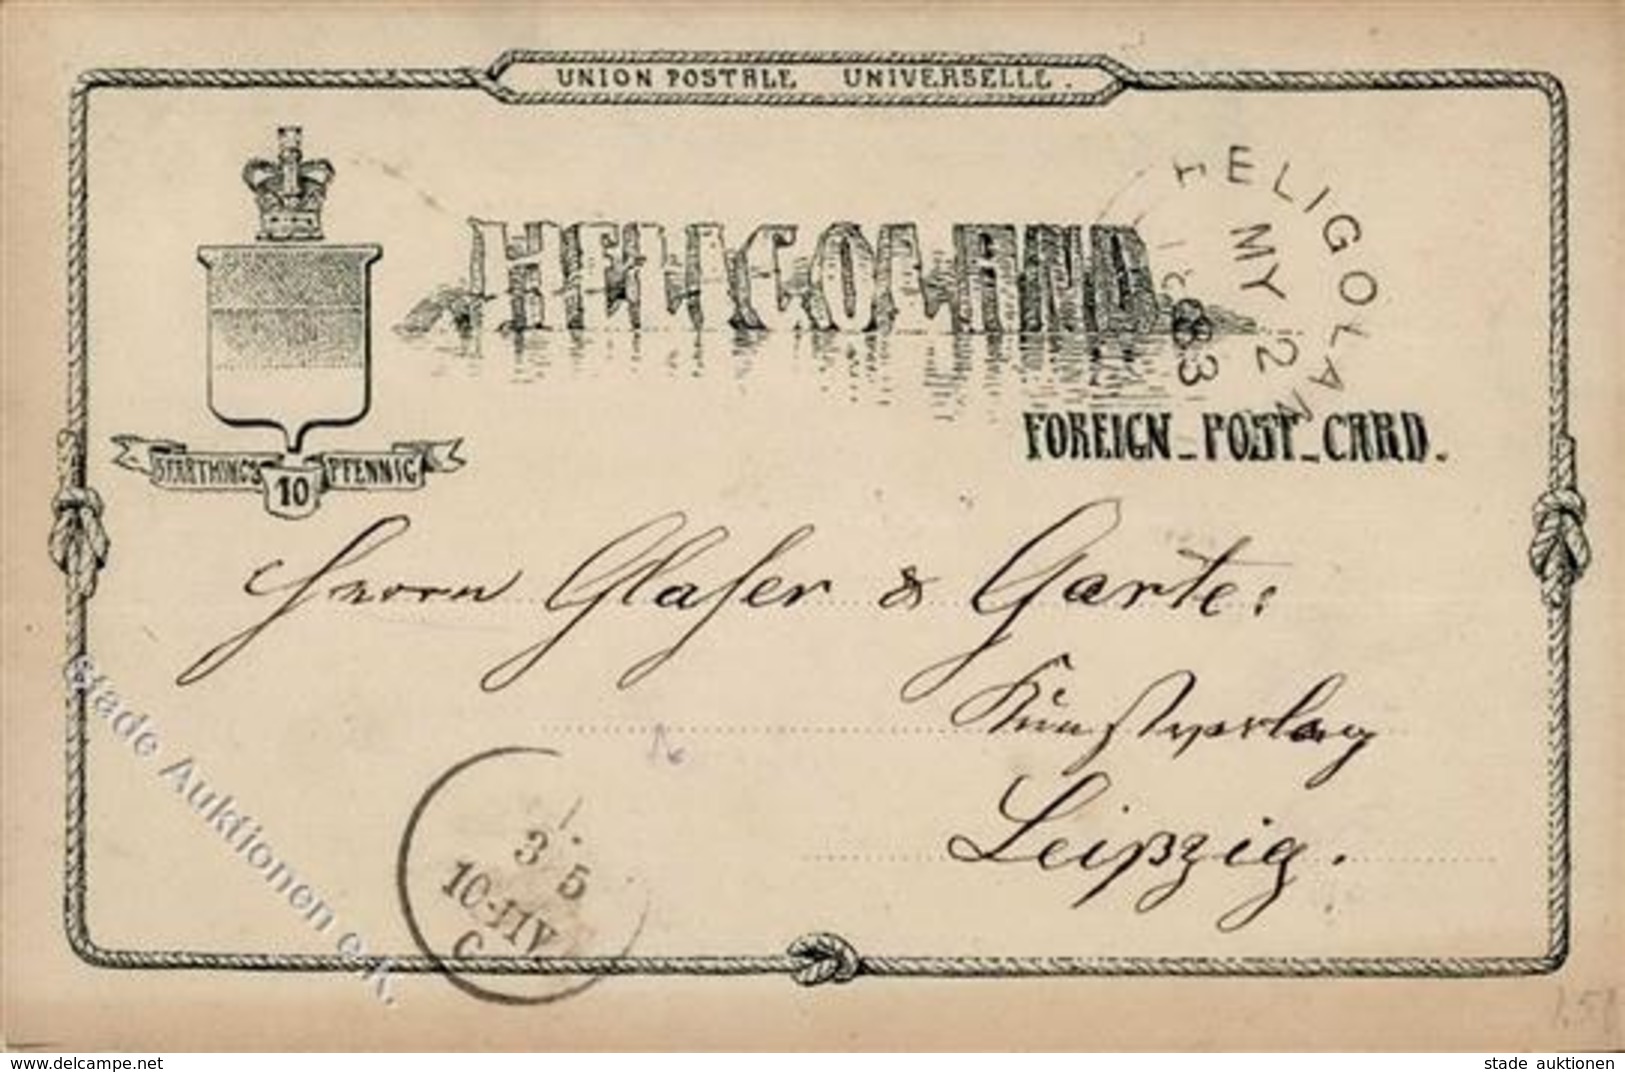 UNION POSTALE UNIVERSELLE.
HELIGOLAND
HELIGOLAN
MY 2
83
FOREIGN POST CARD.
5 FARTHING'S 10 PFENNIG
Herrn Glaser & Garte:
Kunstverlag
Leipzig.
3 5
10-11V
C
stade Auktionen e.K.
www.delcampe.net
stade auktionen